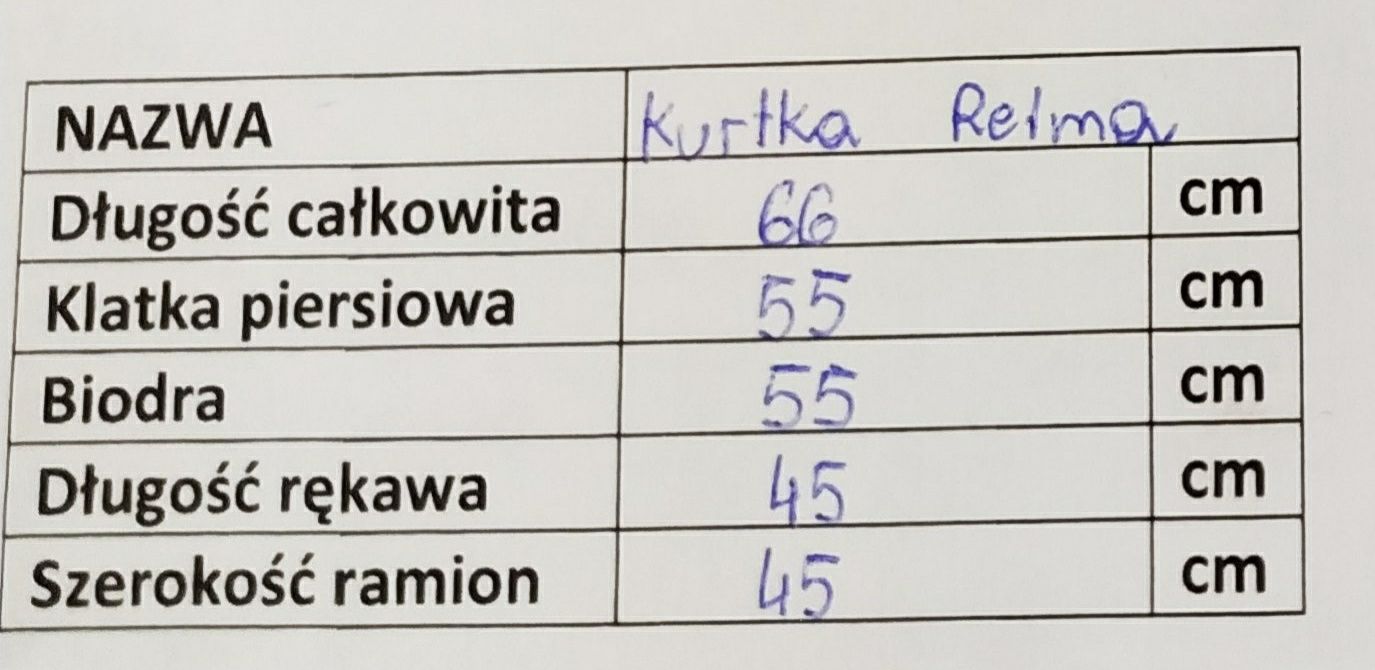 NAZWA Kurtka Reima
Długość całkowita 66 cm
Klatka piersiowa 55 cm
Biodra 55 cm
Długość rękawa 45 cm
Szerokość ramion 45 cm